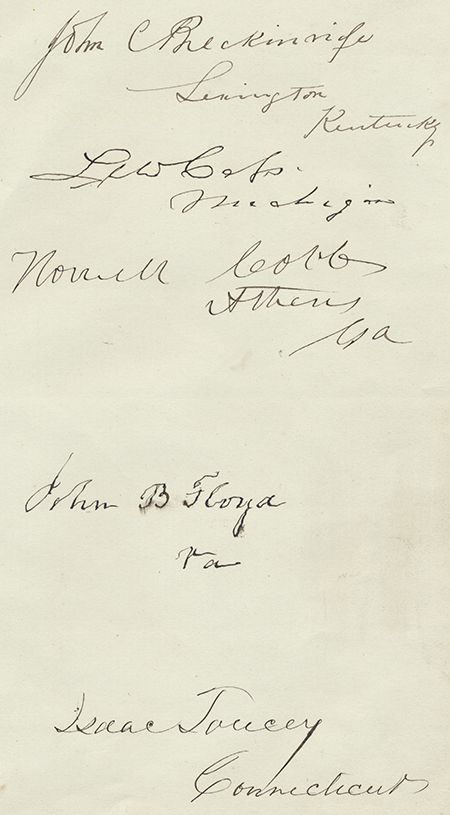 John C Breckinridge
Lexington
Kentucky
Lew Cass.
Michigan
Howell Cobb
Athens
Ga
John B Floyd
Va
Isaac Toucey
Connecticut